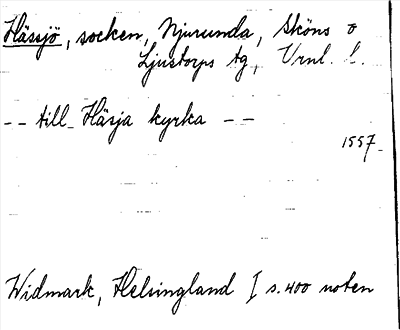 Hässjö, socken, Njurunda, Sköns o
Ljustorps tg, Vrnl. l.
-- till Häsja kyrka --
1557.
Widmark, Helsingland I s. 400 noten